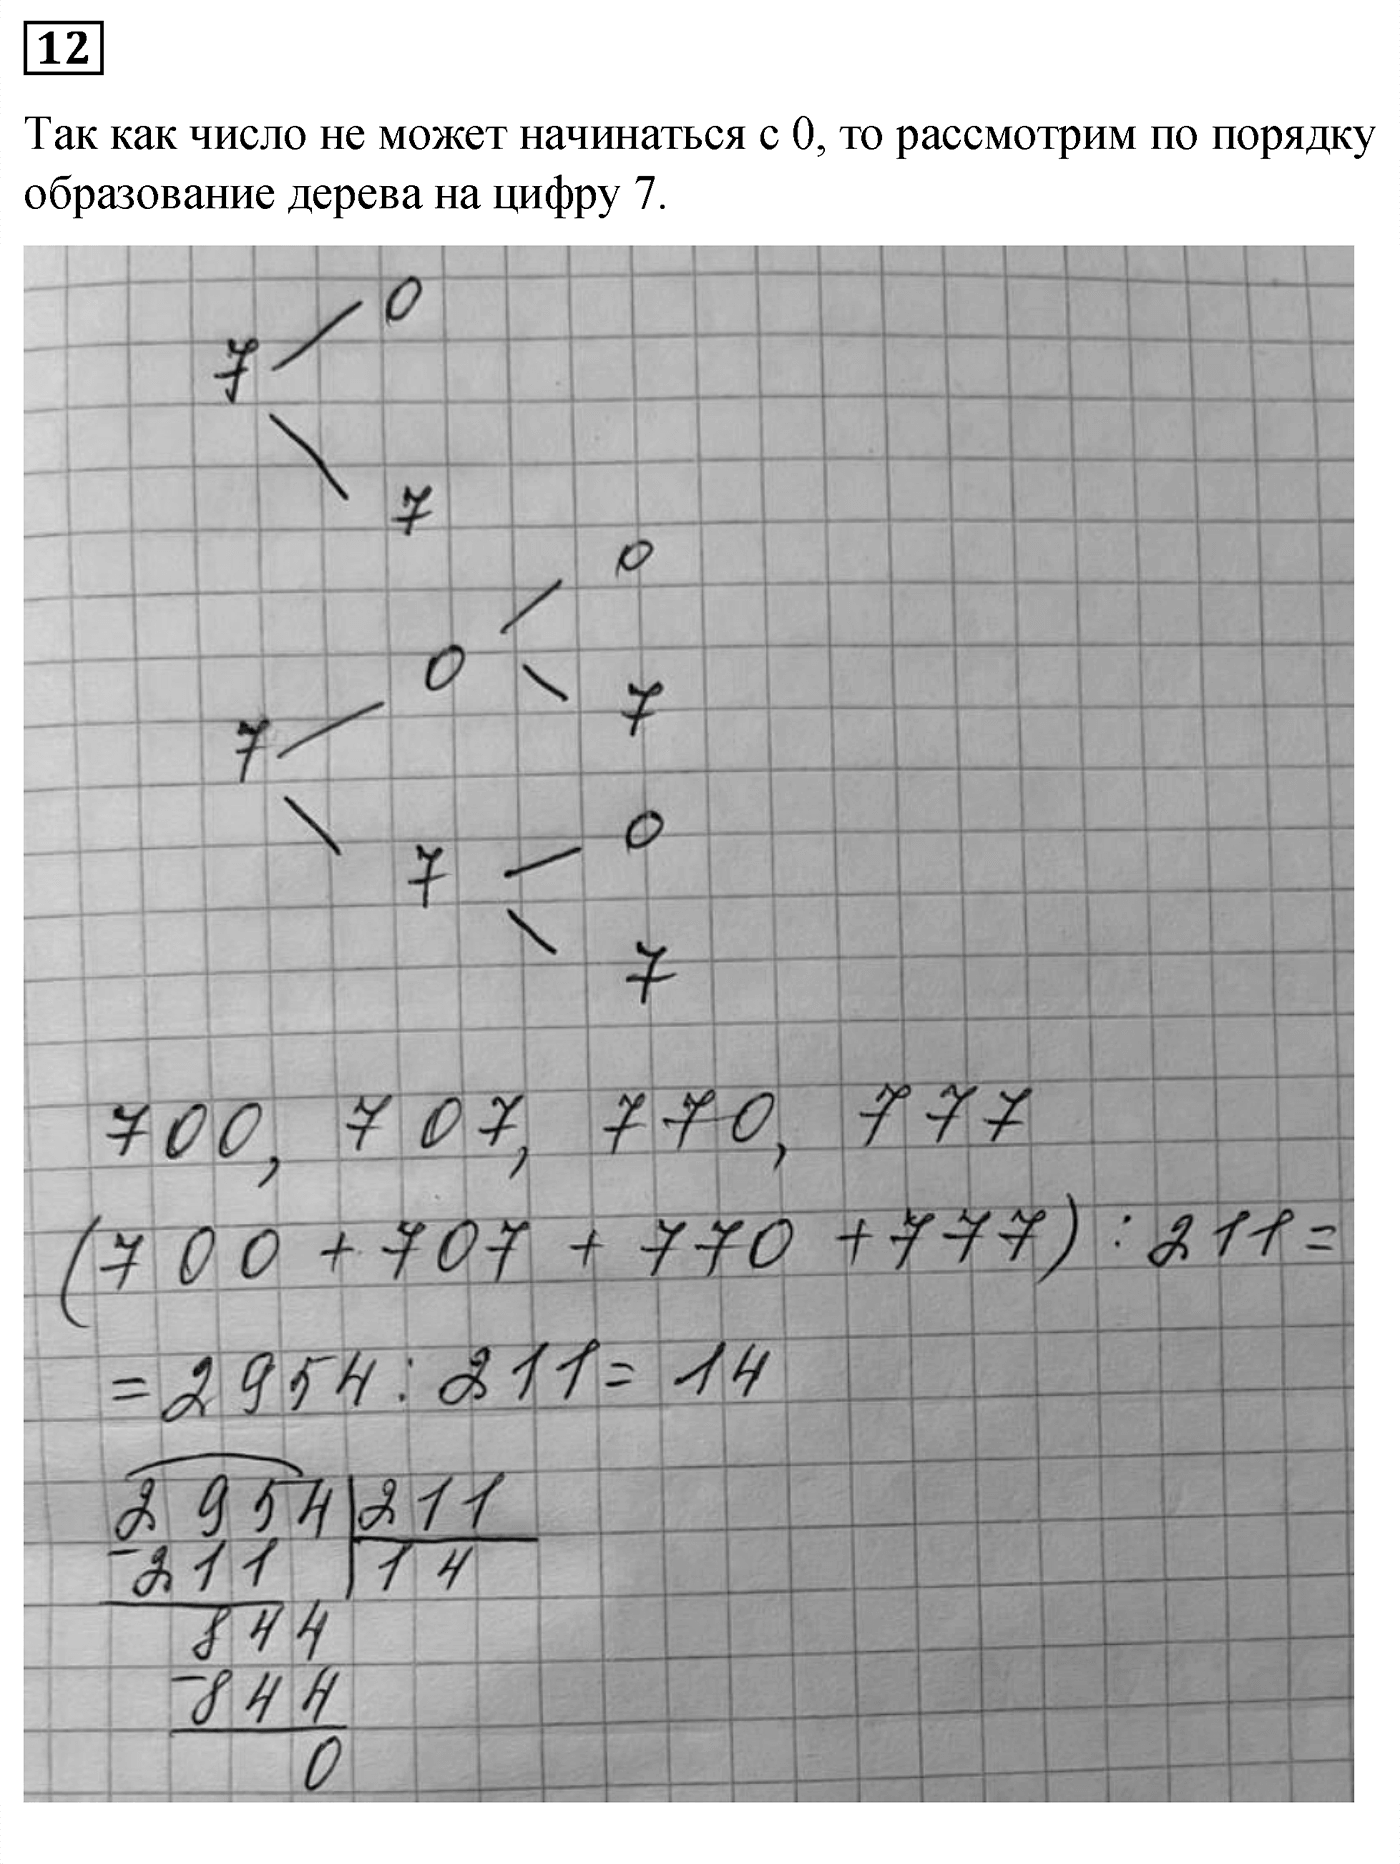 12
Так как число не может начинаться с 0, то рассмотрим по порядку
образование дерева на цифру 7.
0
7
7
0
0
7
7
0
7
7
700, 707, 770, 777
(700 + 707 + 770 + 777) : 211 =
= 2954 : 211 = 14
2954 211
-211 14
844
-844
0